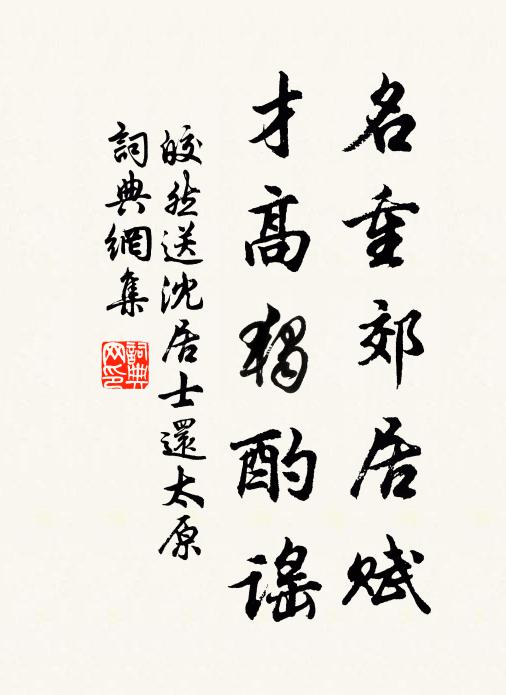 名重郊居賦
才高獨酌謠
皎然送沈居士還太原
詞典網集
詞典网印